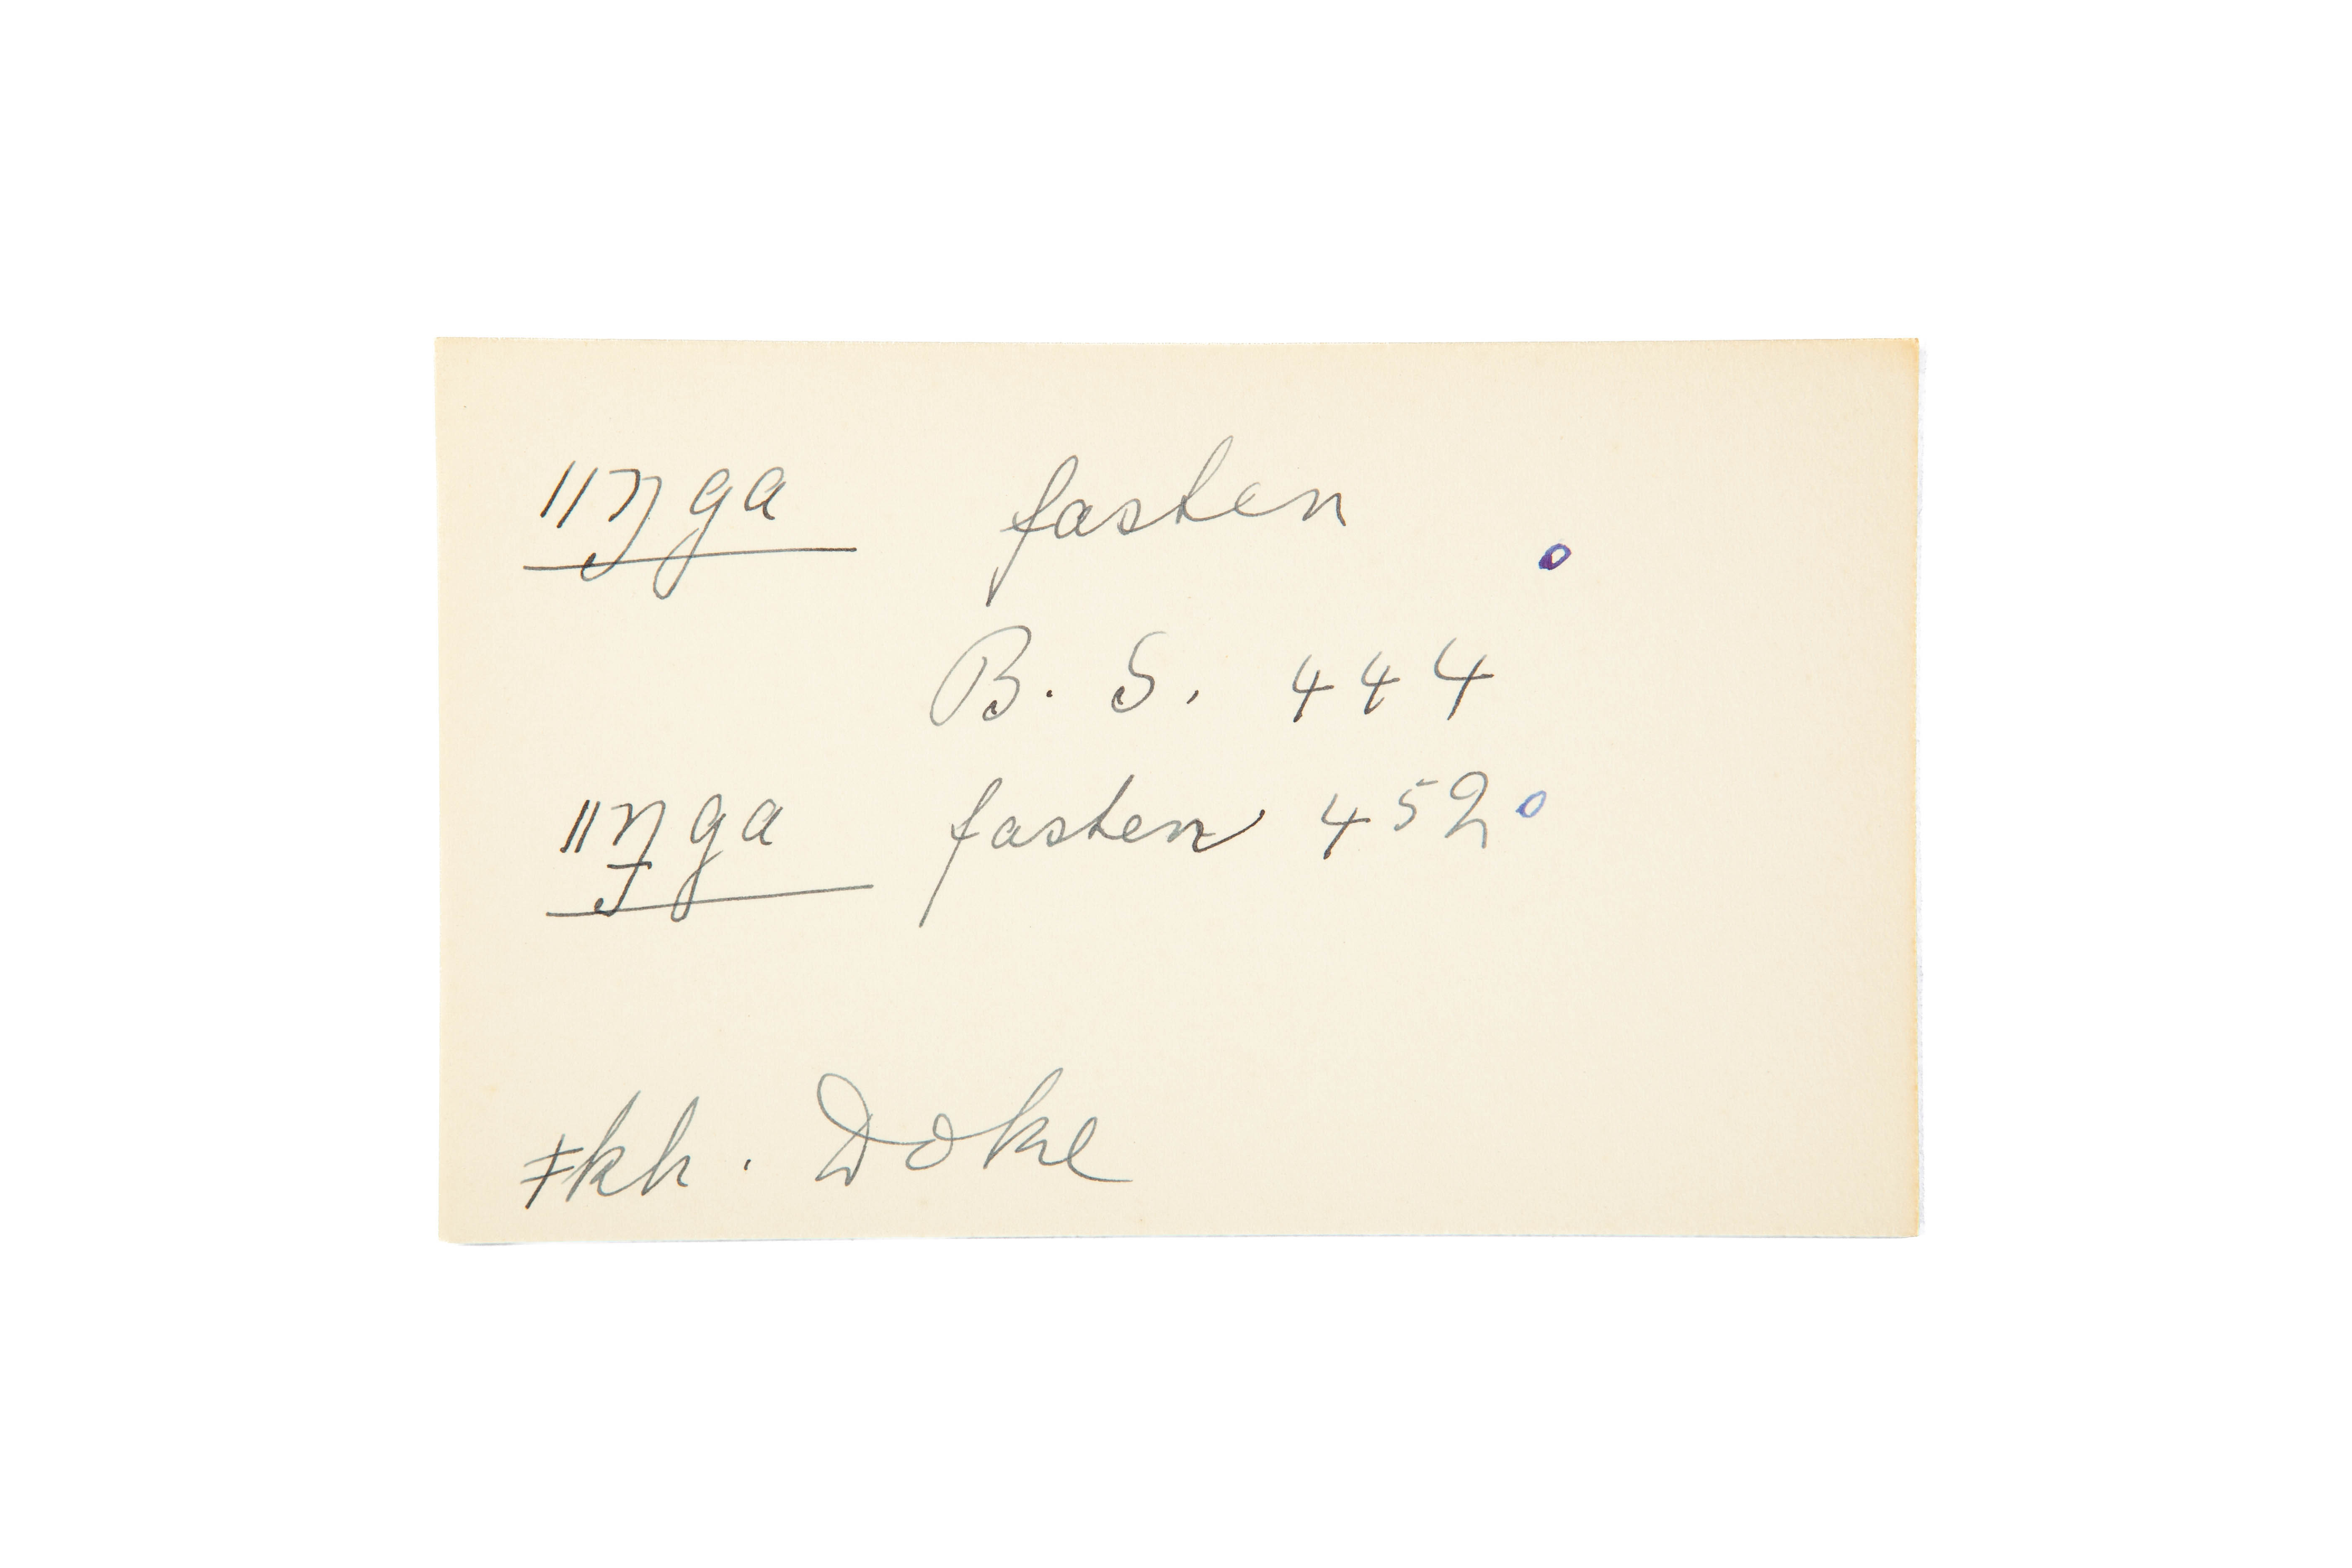 ǁŋga fasten
B. S. 444
ǁŋ̵ga fasten 452
ǂkh. Doke